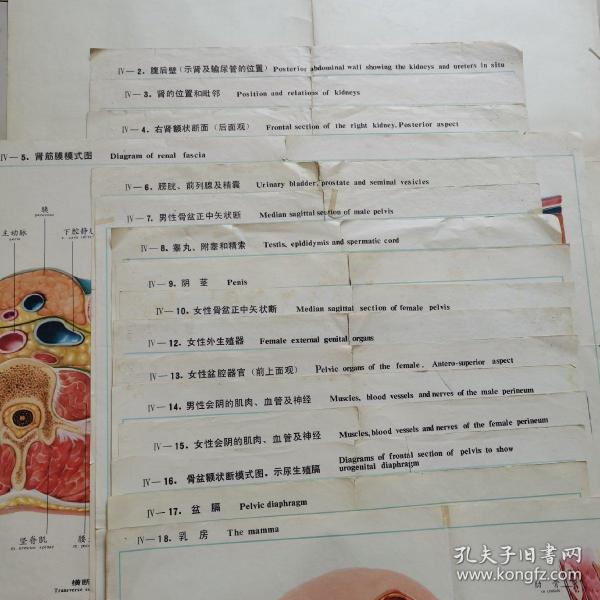 IV—2. 腹后壁（示肾及输尿管的位置） Posterior abdominal wall showing the kidneys and ureters in situ
IV—3. 肾的位置和毗邻 Position and relations of kidneys
IV—4. 右肾额状断面（后面观） Frontal section of the right kidney. Posterior aspect
IV—5. 肾筋膜模式图 Diagram of renal fascia
IV—6. 膀胱、前列腺及精囊 Urinary bladder, prostate and seminal vesicles
IV—7. 男性骨盆正中矢状断 Median sagittal section of male pelvis
IV—8. 睾丸、附睾和精索 Testis, epididymis and spermatic cord
IV—9. 阴茎 Penis
IV—10. 女性骨盆正中矢状断 Median sagittal section of female pelvis
IV—12. 女性外生殖器 Female external genital organs
IV—13. 女性盆腔器官（前上面观） Pelvic organs of the female. Antero-superior aspect
IV—14. 男性会阴的肌肉、血管及神经 Muscles, blood vessels and nerves of the male perineum
IV—15. 女性会阴的肌肉、血管及神经 Muscles, blood vessels and nerves of the female perineum
IV—16. 骨盆额状断模式图。示尿生殖膈 Diagrams of frontal section of pelvis to show
urogenital diaphragm
IV—17. 盆膈 Pelvic diaphragm
IV—18. 乳房 The mamma
胰
pancreas
主动脉
aorta
下腔静
竖脊肌
m. erector spinae
腰
横断
Transverse
孔夫子旧书网
www.kongfz.com